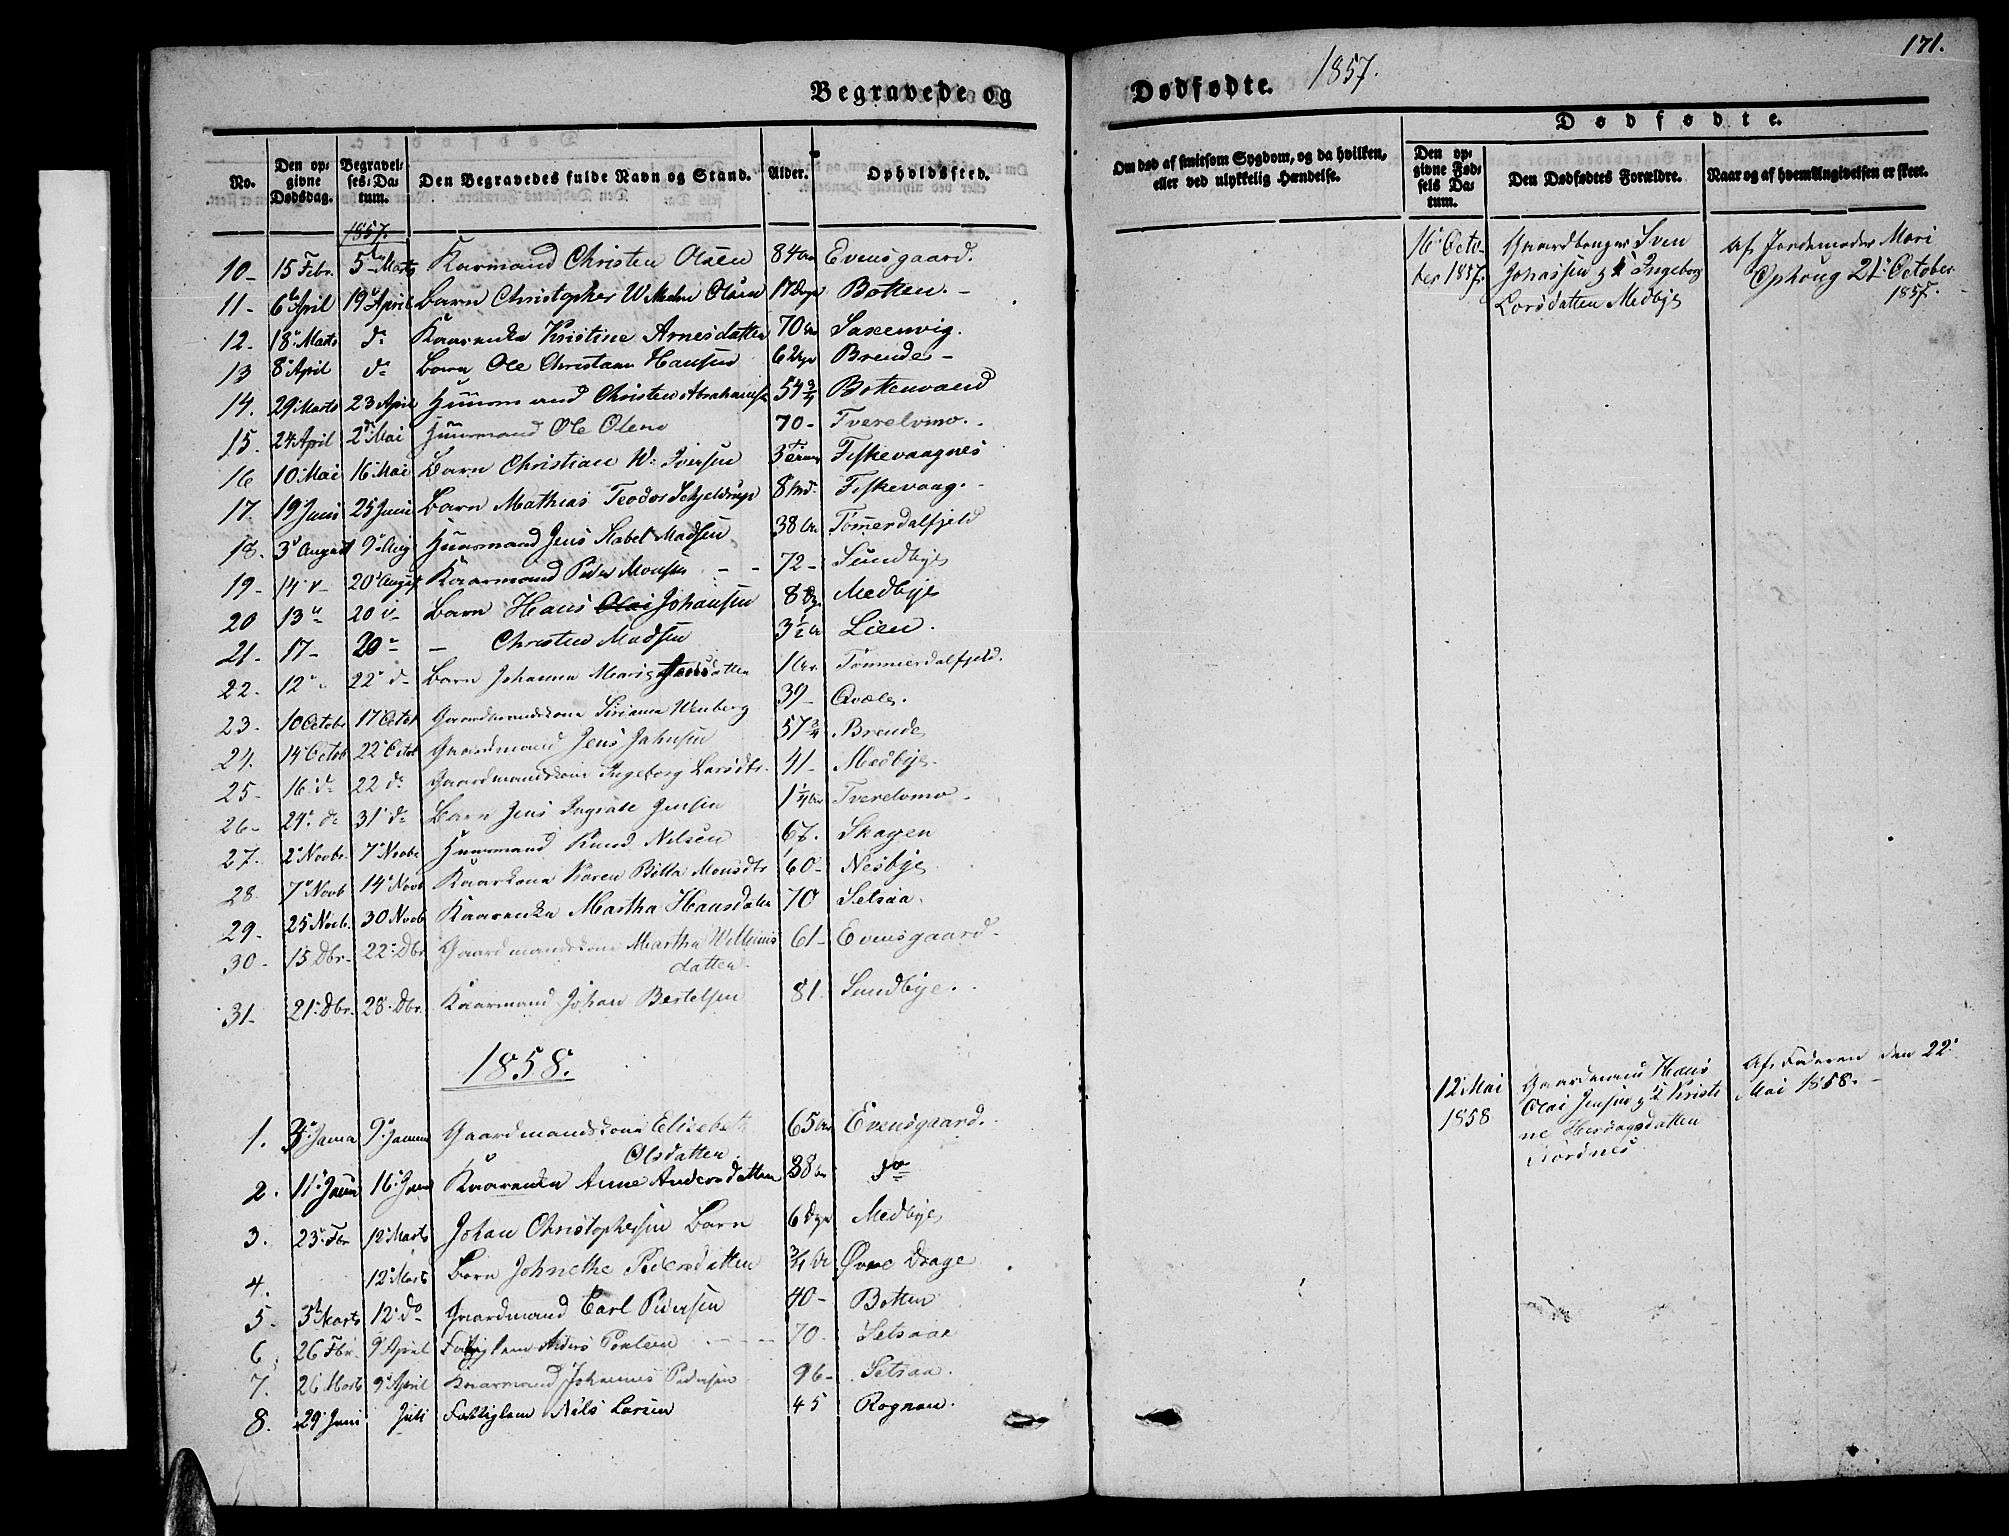 171.
Begravede og
Dødfødte. 1857.
No.
Den op=
givne
Dødsdag.
Begravel=
ses=Da=
tum.
Den Begravedes fulde Navn og Stand.
Alder.
Opholdssted.
Om død af smitsom Sygdom, og da hvilken,
eller ved ulykkelig Hændelse.
Dødfødte.
Den op=
givne Fød=
sels Da=
tum.
Den Dødfødtes Forældre.
Naar og af hvem Angivelsen er skeet.
1857.
10- 15 Febr. 5te Marts Kaarmand Christen Olsen 84 Aar Evensgaard.
11- 6te April 19de April Barn Christopher Wilhelm Olsen 17 Dage Botten.-
12- 18de Marts do Kaarenke Kristine Arnesdatter 70 Aar Saxenvig.
13 8de April do Barn Ole Christian Hansen 6 Uger Brende-
14. 29 Marts 23 April Huusmand Christen Abrahams. 54 3/4 Bottenvand
15. 24 April 2den Mai Huusmand Ole Olsen 70- Tverelvmo.
16 10 Mai 16 Mai Barn Christian W. Iversen 3 Fiskevaagnes
17. 19 Juni 25 Juni Barn Mathias Teodor Schjeldrup 8 Md. Fiskevaag.-
18. 3de August 9de Aug Huusmand Jens Kabel Madsen 38 Aar Tömerdalfjeld
19- 14 - 20de August Kaarmand Peder Monsen - - 72- Sundbye
20 13 - 20 - Barn Hans Olai Johansen 8 Dg. Medbye
21- 17- 20 - - Christen Madsen 3 1/2 Aar Lien.
22- 12 - 22 do Barn Johanna Maria Jensdatter 1 Aar Tömmerdalfjeld.
23. 10 Octobr 17 Octob Gaardmandskone Sirianna Wenberg 39- Qvæle.
24. 14 Octob 22 Octob Gaardmand Jens Jahnsen 57 3/4 Brende
25- 16 do 22 do Gaardmandskone Ingeborg Larsdtr. 41- Medbye.
26- 24. do 31 do Barn Jens Ingvald Jensen 1 1/4 Aar Tverelvmo.
27. 2 Novbr. 7 Novbr Huusmand Knud Nilsen 67. Skagen
28. 7 Novb 14 Novb Kaarkone Karen Bitta Monsdtr 60- Nesbye
29- 25 Novb. 30 Novb Kaarenke Martha Hansdatter 70 Setsaa.
30- 15 Dbr- 22 Dbr Gaardmandskone Martha Wilhelms
datter. 61- Evensgaard-
31- 21 Dbr. 28 Dbr. Kaarmand Johan Bertelsen 81. Sundbye.
16 Octo-
ber 1857.
Gaardbruger Sven
Johassen & K Ingeborg
Larsdatter Medbye
Af Jordemoder Mari
Ophoug 21 October
1857.
1858.
1. 3 Janua 9 Januar Gaardmandskone Elisabeth
Olsdatter. 65 Aar Evensgaard.
2. 11 Janu 16 Janu Kaarenke Anne Andersdatter 88 Aar do
3. 23 Fbr 12 Marts Johan Christophersen Barn 6 Dage Medbye
4. 12 Marts Barn Johnethe Pedersdatter 3/4 Ar Øvre Drage
5- 3 Marts 12 do Gaardmand Carl Pedersen 40- Botten
6. 26 Fbr. 9 April Fattiglem Anders Poulsen 70. Setsaae
7. 26 Marts 9 April Kaarmand Johannes Pedersen 96- Setsaa.
8. 29 Juni Juli Fattiglem Nils Larsen 45 Rognan.
12 Mai
1858
Gaardmand Hans
Olai Jensen & K Kristi-
ne Hersdagsdatter
Nordnes
Af Faderen den 22
Mai 1858.-